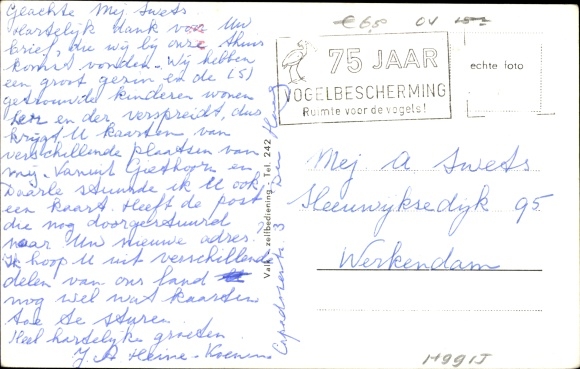 Geachte Mej Swets.
Hartelijk dank voor Uw
brief, die wij bij onze thuis
komst vonden. Wij hebben
een groot gezin en de (5)
getrouwde kinderen wonen
her en der verspreidt, dus
krijgt U kaarten van
verschillende plaatsen van
mij. Vanuit Giethoorn en
Daarle stuurde ik U ook
een kaart. Heeft de post
die nog doorgestuurd
naar Uw nieuwe adres?
Ik hoop U uit verschillende
delen van ons land
nog wel wat kaarten
toe te sturen.
Heel hartelijke groeten.
J. A Heine-
Den Haag
zelfbediening - Tel. 242
€ 6,50
OV
75 JAAR
VOGELBESCHERMING
Ruimte voor de vogels!
echte foto
Mej. A Swets
Sleeuwijksedijk 95
Werkendam